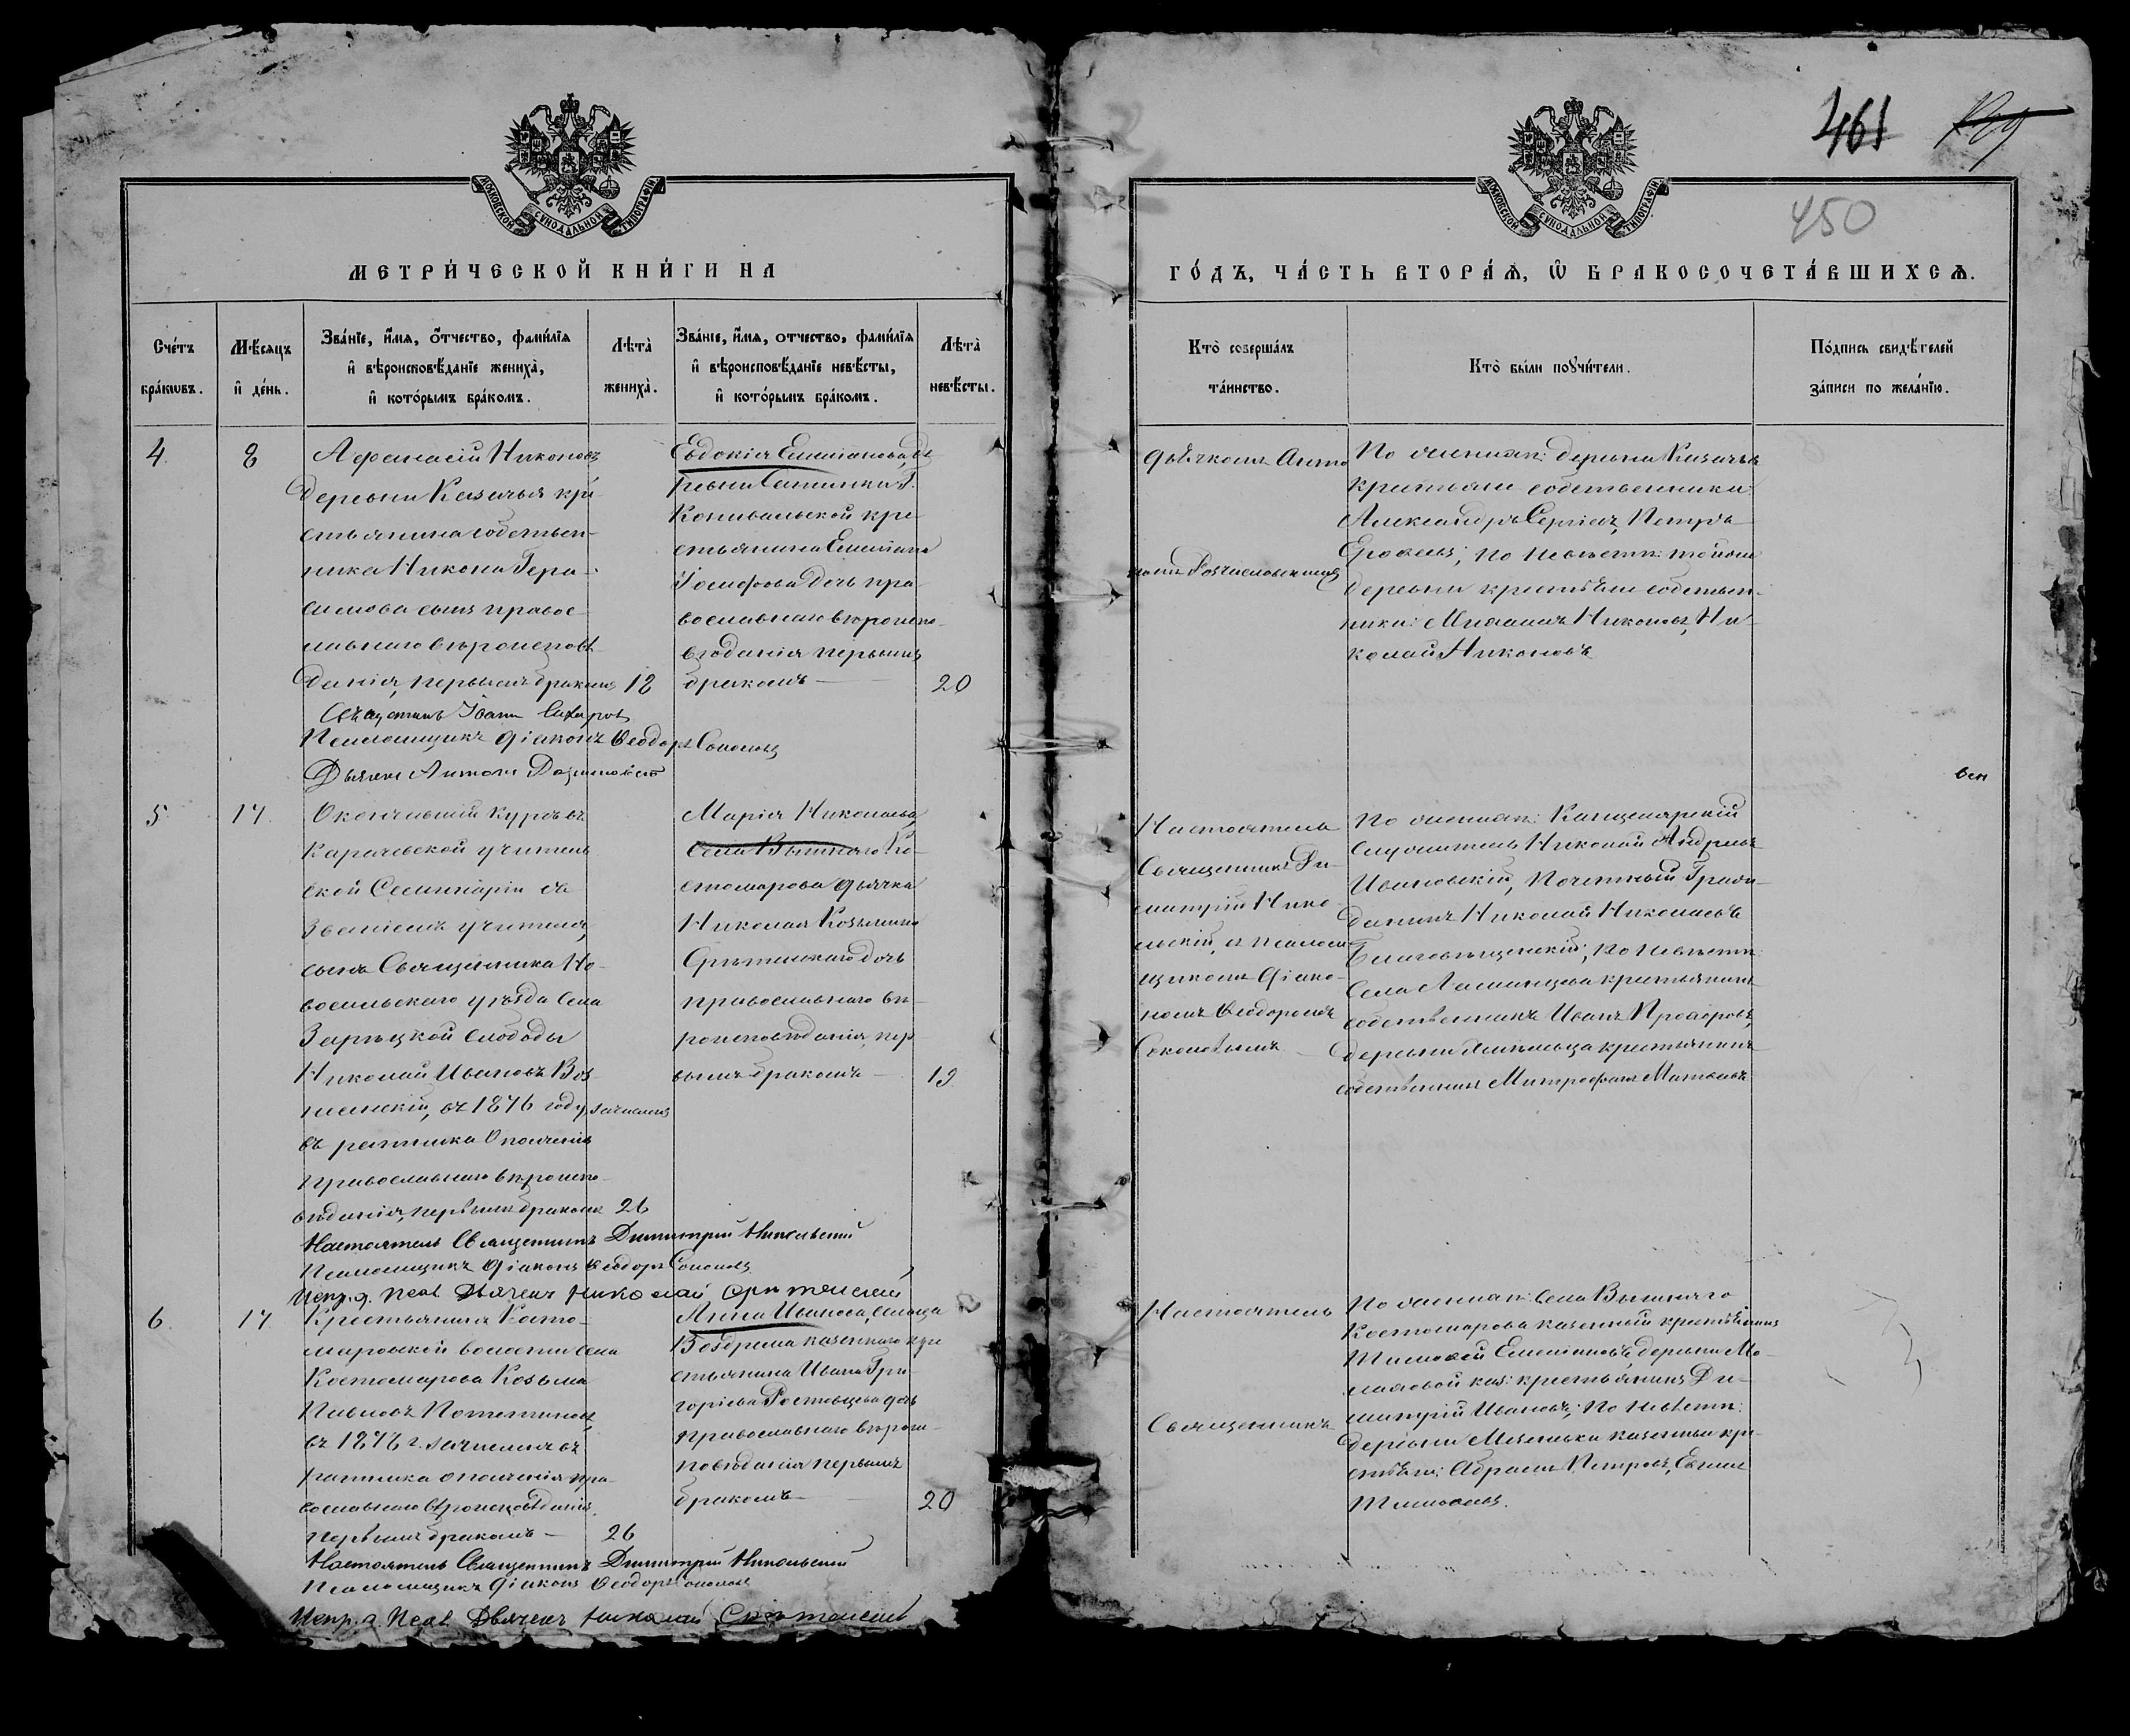 МОСКОВСКОЙ СѴНОДАЛЬНОЙ ТИПОГРАФІИ
МЕТРИ́ЧЕСКОЙ КНИ́ГИ НА
Сче́тъ бра́кωвъ.
Мѣ́сяцъ и҆ де́нь.
Зва́нїе, и҆́мѧ, ѻ҆́тчество, фами́лїѧ
и҆ вѣроисповѣ́данїе жениха̀,
и҆ кото́рымъ бра́комъ.
Лѣта̀ жениха̀.
Зва́нїе, и҆́мѧ, отчество, фами́лїѧ
и҆ вѣроисповѣ́данїе невѣ́сты,
и҆ кото́рымъ бра́комъ.
Лѣта̀ невѣ́сты.
4.
8
Афанасій Никоновъ
деревни Казачья кре-
стьянина собствен-
ника Никона Гера-
симова сынъ правос-
лавнаго вѣроисповѣ
данія, первымъ бракомъ 18
Евдокія Емиліанова, де
ревни
крe-
стьянина Емиліана
Іосифова дочь пра-
вославнаго вѣроиспо-
вѣданія первымъ
бракомъ 20
Священникъ Іоаннъ
Псаломщикъ діаконъ Ѳеодоръ Соколовъ
Дьячекъ Антоній
5.
14.
Окончившій курсъ въ
Карачевской учитель
ской Семинаріи съ
званіемъ учителя,
сынъ Священника Но-
восильскаго уѣзда Села
Зарѣцкой слободы
Николай Ивановъ Воз-
несенскій, въ 1876 году зачисленъ
въ ратника ополченія
православнаго вѣроиспо-
вѣданія, первымъ бракомъ 26
Марія Николаева,
Села Вышняго Ко-
стомарова дьячка
Николая Козьмина
Срѣтенскаго дочь
православнаго вѣ-
роисповѣданія, пер
вымъ бракомъ 19
Настоятель Священникъ Димитрій Никольскій
Псаломщикъ діаконъ Ѳеодоръ Соколовъ
Испр. д. Псал. Дьячекъ Николай Срѣтенскій
6.
14
Крестьянинъ Косто-
маровской волости Села
Костомарова Козьма
Павловъ
въ 1878 г. зачисленъ въ
ратника ополченія пра-
вославнаго вѣроисповѣданія,
первымъ бракомъ 26
Анна Иванова,
казеннаго кре
стьянина Ивана Гри
горіева Ростовцева дочь
православнаго вѣроис-
повѣданія первымъ
бракомъ 20
Настоятель Священникъ Димитрій Никольскій
Псаломщикъ діаконъ Ѳеодоръ Соколовъ
Испр. д. Псал. Дьячекъ Николай Срѣтенскій
461
450
МОСКОВСКОЙ СѴНОДАЛЬНОЙ ТИПОГРАФІИ
ГО́ДЪ, ЧА́СТЬ ВТОРА́Ѧ, Ѡ҆ БРАКОСОЧЕТА́ВШИХСѦ.
Кто̀ соверша́лъ
та́инство.
Кто̀ бы́ли порꙋчи́тели.
По́дпись свидѣ́телей
за́писи по жела́нїю.
дьячкомъ Анто
По женихѣ: деревни Казачья
крестьяне собственники:
Александръ Сергіевъ, Петръ
Ерофеевъ; по невѣстѣ: той же
деревни крестьяне собствен-
ники: Михаилъ Никоновъ, Ни-
колай Никоновъ
Настоятель
Священникъ Ди-
митрій Нико-
льскій, съ псалом
щикомъ діако-
номъ Ѳеодоромъ
Соколовымъ
По женихѣ: Канцелярскій
служитель Николай Андреевъ
Ивановскій, Почетный Граж-
данинъ Николай Николаевъ
Благовѣщенскій; по невѣстѣ:
Села крестьянинъ
собственникъ Иванъ Прохоровъ,
деревни крестьянинъ
собственникъ Митрофанъ Матвѣевъ
Настоятель
Священникъ
По женихѣ: Села Вышняго
Костомарова казенный крестьянинъ
Тимофей Емеліановъ, деревни Мо-
ховой каз: крестьянинъ Ди-
митрій Ивановъ; по невѣстѣ:
деревни казенные кре
стьяне: Абрамъ Петровъ,
Тимофеевъ.